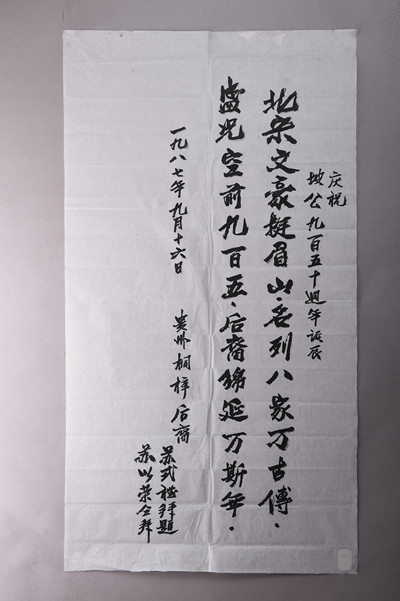 庆祝
坡公九百五十週年诞辰
北宋文豪挺眉山。名列八家万古傅。
盛况空前九百五。后裔绵延万斯年。
一九八七年九月十六日
贵州桐梓后裔
苏式 拜题
苏以荣仝拜